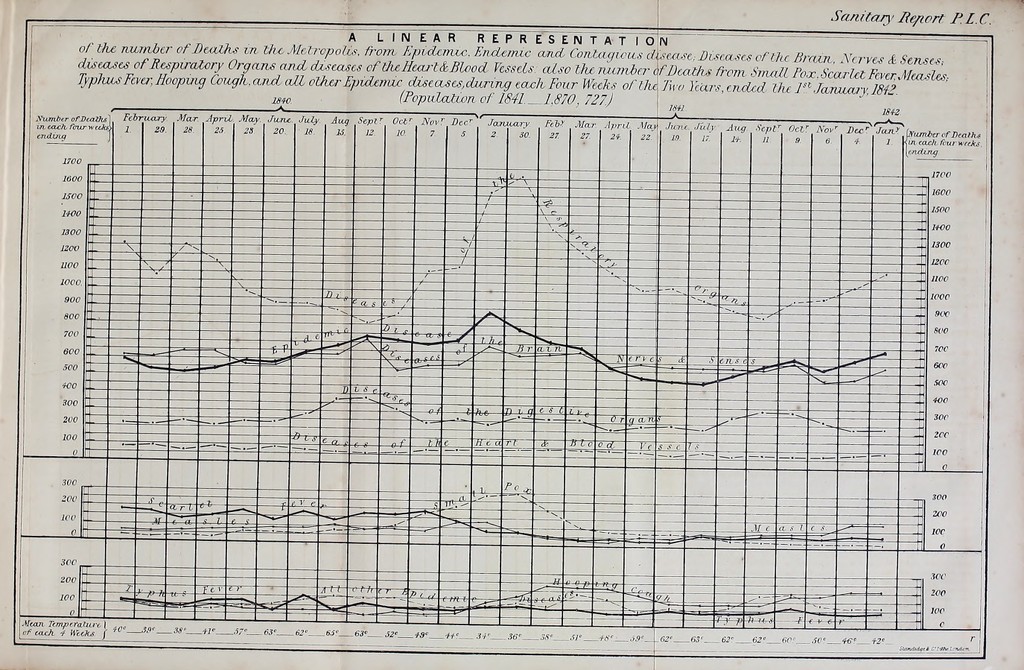 Sanitary Report P.L.C.
A LINEAR REPRESENTATION
of the number of Deaths in the Metropolis, from Epidemic, Endemic and Contagious disease, Diseases of the Brain, Nerves & Senses;
diseases of Respiratory Organs and diseases of the Heart & Blood Vessels, also the number of Deaths from Small Pox, Scarlet Fever, Measles;
Typhus Fever, Hooping Cough, and all other Epidemic diseases, during each Four Weeks of the Two Years, ended the 1st January, 1842.
(Population of 1841 1,870,727)
1840 1841 1842
Number of Deaths in each four weeks ending
February Mar April May June July Aug Septr Octr Novr Decr January Febr Mar April May June July Aug Septr Octr Novr Decr Janr
Number of Deaths in each four weeks ending
1. 29. 28 25 23 20. 18. 15. 12. 10. 7 5 2 30. 27 27. 24. 22. 19. 17. 14. 11. 9 6. 4. 1.
1700 1700
1600 1600
1500 1500
1400 1400
1300 1300
1200 1200
1100 1100
1000 1000
900 900
800 800
700 700
600 600
500 500
400 400
300 300
200 200
100 100
0 0
Diseases of the Respiratory Organs
Epidemic Disease
Diseases of the Brain Nerves & Senses
Diseases of the Digestive Organs
Diseases of the Heart & Blood Vessels
300 300
200 200
100 100
0 0
Scarlet fever
Small Pox
Measles Measles
300 300
200 200
100 100
0 0
Typhus Fever
All other Epidemic Diseases
Hooping Cough
Typhus Fever
Mean Temperature of each 4 Weeks
40° 39° 38° 41° 57° 63° 62° 65° 63° 52° 49° 44° 34° 36° 38° 51° 48° 59° 62° 63° 62° 62° 60° 50° 46° 42°